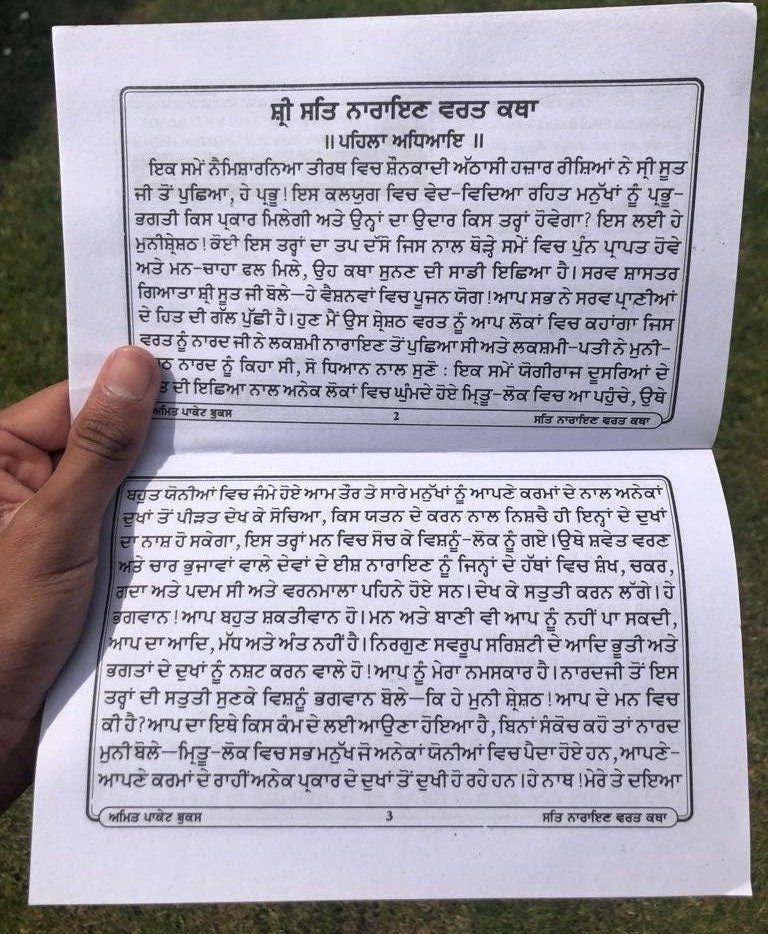 ਸ਼੍ਰੀ ਸਤਿ ਨਾਰਾਇਣ ਵਰਤ ਕਥਾ
॥ ਪਹਿਲਾ ਅਧਿਆਇ ॥
ਇਕ ਸਮੇਂ ਨੈਮਿਸ਼ਾਰਨਿਆ ਤੀਰਥ ਵਿਚ ਸ਼ੌਨਕਾਦੀ ਅੱਠਾਸੀ ਹਜ਼ਾਰ ਰੀਸ਼ਿਆਂ ਨੇ ਸ੍ਰੀ ਸੂਤ
ਜੀ ਤੋਂ ਪੁਛਿਆ, ਹੇ ਪ੍ਰਭੂ! ਇਸ ਕਲਯੁਗ ਵਿਚ ਵੇਦ-ਵਿਦਿਆ ਰਹਿਤ ਮਨੁੱਖਾਂ ਨੂੰ ਪ੍ਰਭੂ-
ਭਗਤੀ ਕਿਸ ਪ੍ਰਕਾਰ ਮਿਲੇਗੀ ਅਤੇ ਉਨ੍ਹਾਂ ਦਾ ਉਦਾਰ ਕਿਸ ਤਰ੍ਹਾਂ ਹੋਵੇਗਾ? ਇਸ ਲਈ ਹੇ
ਮੁਨੀਸ਼੍ਰੇਸ਼ਠ! ਕੋਈ ਇਸ ਤਰ੍ਹਾਂ ਦਾ ਤਪ ਦੱਸੋ ਜਿਸ ਨਾਲ ਥੋੜ੍ਹੇ ਸਮੇਂ ਵਿਚ ਪੁੰਨ ਪ੍ਰਾਪਤ ਹੋਵੇ
ਅਤੇ ਮਨ-ਚਾਹਾ ਫਲ ਮਿਲੇ, ਉਹ ਕਥਾ ਸੁਨਣ ਦੀ ਸਾਡੀ ਇਛਿਆ ਹੈ। ਸਰਵ ਸ਼ਾਸਤਰ
ਗਿਆਤਾ ਸ਼੍ਰੀ ਸੂਤ ਜੀ ਬੋਲੇ—ਹੇ ਵੈਸ਼ਨਵਾਂ ਵਿਚ ਪੂਜਨ ਯੋਗ! ਆਪ ਸਭ ਨੇ ਸਰਵ ਪ੍ਰਾਣੀਆਂ
ਦੇ ਹਿਤ ਦੀ ਗੱਲ ਪੁੱਛੀ ਹੈ। ਹੁਣ ਮੈਂ ਉਸ ਸ਼੍ਰੇਸ਼ਠ ਵਰਤ ਨੂੰ ਆਪ ਲੋਕਾਂ ਵਿਚ ਕਹਾਂਗਾ ਜਿਸ
ਵਰਤ ਨੂੰ ਨਾਰਦ ਜੀ ਨੇ ਲਕਸ਼ਮੀ ਨਾਰਾਇਣ ਤੋਂ ਪੁਛਿਆ ਸੀ ਅਤੇ ਲਕਸ਼ਮੀ-ਪਤੀ ਨੇ ਮੁਨੀ-
ਨਾਰਦ ਨੂੰ ਕਿਹਾ ਸੀ, ਸੋ ਧਿਆਨ ਨਾਲ ਸੁਣੋ : ਇਕ ਸਮੇਂ ਯੋਗੀਰਾਜ ਦੂਸਰਿਆਂ ਦੇ
ਦੀ ਇਛਿਆ ਨਾਲ ਅਨੇਕ ਲੋਕਾਂ ਵਿਚ ਘੁੰਮਦੇ ਹੋਏ ਮ੍ਰਿਤੂ-ਲੋਕ ਵਿਚ ਆ ਪਹੁੰਚੇ, ਉਥੇ
ਅਮਿਤ ਪਾਕੇਟ ਬੁਕਸ 2 ਸਤਿ ਨਾਰਾਇਣ ਵਰਤ ਕਥਾ
ਬਹੁਤ ਯੋਨੀਆਂ ਵਿਚ ਜੰਮੇ ਹੋਏ ਆਮ ਤੌਰ ਤੇ ਸਾਰੇ ਮਨੁੱਖਾਂ ਨੂੰ ਆਪਣੇ ਕਰਮਾਂ ਦੇ ਨਾਲ ਅਨੇਕਾਂ
ਦੁਖਾਂ ਤੋਂ ਪੀੜਤ ਦੇਖ ਕੇ ਸੋਚਿਆ, ਕਿਸ ਯਤਨ ਦੇ ਕਰਨ ਨਾਲ ਨਿਸ਼ਚੈ ਹੀ ਇਨ੍ਹਾਂ ਦੇ ਦੁਖਾਂ
ਦਾ ਨਾਸ਼ ਹੋ ਸਕੇਗਾ, ਇਸ ਤਰ੍ਹਾਂ ਮਨ ਵਿਚ ਸੋਚ ਕੇ ਵਿਸ਼ਨੂੰ-ਲੋਕ ਨੂੰ ਗਏ। ਉਥੇ ਸ਼ਵੇਤ ਵਰਣ
ਅਤੇ ਚਾਰ ਭੁਜਾਵਾਂ ਵਾਲੇ ਦੇਵਾਂ ਦੇ ਈਸ਼ ਨਾਰਾਇਣ ਨੂੰ ਜਿਨ੍ਹਾਂ ਦੇ ਹੱਥਾਂ ਵਿਚ ਸ਼ੰਖ, ਚਕਰ,
ਗਦਾ ਅਤੇ ਪਦਮ ਸੀ ਅਤੇ ਵਰਨਮਾਲਾ ਪਹਿਨੇ ਹੋਏ ਸਨ। ਦੇਖ ਕੇ ਸਤੁਤੀ ਕਰਨ ਲੱਗੇ। ਹੇ
ਭਗਵਾਨ! ਆਪ ਬਹੁਤ ਸ਼ਕਤੀਵਾਨ ਹੋ। ਮਨ ਅਤੇ ਬਾਣੀ ਵੀ ਆਪ ਨੂੰ ਨਹੀਂ ਪਾ ਸਕਦੀ,
ਆਪ ਦਾ ਆਦਿ, ਮੱਧ ਅਤੇ ਅੰਤ ਨਹੀਂ ਹੈ। ਨਿਰਗੁਣ ਸਵਰੂਪ ਸਰਿਸ਼ਟੀ ਦੇ ਆਦਿ ਭੂਤੀ ਅਤੇ
ਭਗਤਾਂ ਦੇ ਦੁਖਾਂ ਨੂੰ ਨਸ਼ਟ ਕਰਨ ਵਾਲੇ ਹੋ! ਆਪ ਨੂੰ ਮੇਰਾ ਨਮਸਕਾਰ ਹੈ। ਨਾਰਦਜੀ ਤੋਂ ਇਸ
ਤਰ੍ਹਾਂ ਦੀ ਸਤੁਤੀ ਸੁਣਕੇ ਵਿਸ਼ਨੂੰ ਭਗਵਾਨ ਬੋਲੇ—ਕਿ ਹੇ ਮੁਨੀ ਸ਼੍ਰੇਸ਼ਠ! ਆਪ ਦੇ ਮਨ ਵਿਚ
ਕੀ ਹੈ? ਆਪ ਦਾ ਇਥੇ ਕਿਸ ਕੰਮ ਦੇ ਲਈ ਆਉਣਾ ਹੋਇਆ ਹੈ, ਬਿਨਾਂ ਸੰਕੋਚ ਕਹੋ ਤਾਂ ਨਾਰਦ
ਮੁਨੀ ਬੋਲੇ—ਮ੍ਰਿਤੂ-ਲੋਕ ਵਿਚ ਸਭ ਮਨੁੱਖ ਜੋ ਅਨੇਕਾਂ ਯੋਨੀਆਂ ਵਿਚ ਪੈਦਾ ਹੋਏ ਹਨ, ਆਪਣੇ-
ਆਪਣੇ ਕਰਮਾਂ ਦੇ ਰਾਹੀਂ ਅਨੇਕ ਪ੍ਰਕਾਰ ਦੇ ਦੁਖਾਂ ਤੋਂ ਦੁਖੀ ਹੋ ਰਹੇ ਹਨ। ਹੇ ਨਾਥ! ਮੇਰੇ ਤੇ ਦਇਆ
ਅਮਿਤ ਪਾਕੇਟ ਬੁਕਸ 3 ਸਤਿ ਨਾਰਾਇਣ ਵਰਤ ਕਥਾ